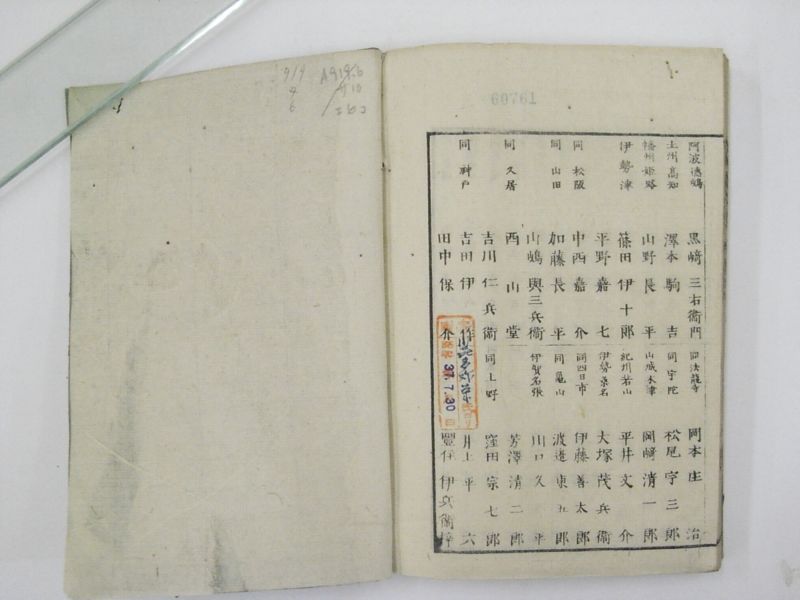 60761
阿波徳嶋 黒﨑三右衛門
土州高知 澤本駒吉
播州姫路 山野長平
伊勢津 篠田伊十郎
平野嘉七
同松阪 中西嘉介
同山田 加藤長平
山嶋與三兵衛
同久居 西山堂
吉川仁兵衛
同神戸 吉田伊
田中保介
同法龍寺 岡本庄治
同宇陀 松尾宇三郎
山城木津 岡﨑清一郎
紀州若山 平井文介
伊勢桑名 大塚茂兵衛
同四日市 伊藤善太郎
同亀山 渡邉東五郎
伊賀名張 川口久平
芳澤清二郎
同上野 窪田宗七郎
井上平六
豊住伊兵衛
37.7.30